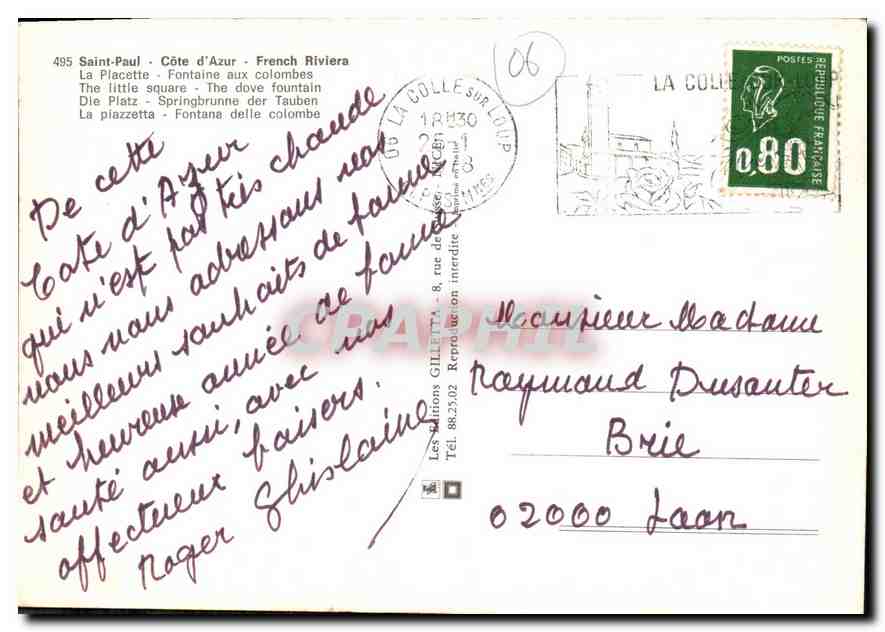 495 Saint-Paul - Côte d'Azur - French Riviera
La Placette - Fontaine aux colombes
The little square - The dove fountain
Die Platz - Springbrunne der Tauben
La piazzetta - Fontana delle colombe
De cette
Cote d'Azur
qui n'est pas très chaude
nous vous adressons nos
meilleurs souhaits de bonne
et heureuse année de bonne
santé aussi, avec nos
affectueux baisers.
Roger Ghislaine
Les Editions GILLETTA - 8, rue de - NICE
Tél. 88.25.02 Reproduction interdite - Imprimé en Italie
06
06 LA COLLE SUR LOUP
18H30
LA COLLE LOUP
POSTES
REPUBLIQUE FRANÇAISE
0,80
Monsieur Madame
Raymond Dusauter
Brie
02000 Laon
CRAPHIL